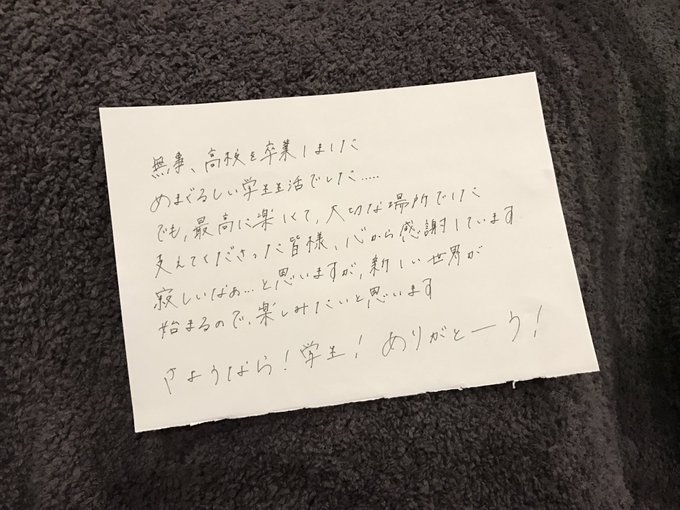 無事、高校を卒業しました
めまぐるしい学生生活でした.....
でも、最高に楽しくて、大切な場所でした
支えてくださった皆様、心から感謝しています
寂しいなぁ...と思いますが、新しい世界が
始まるので、楽しみたいと思います
さようなら！学生！ありがとーう！